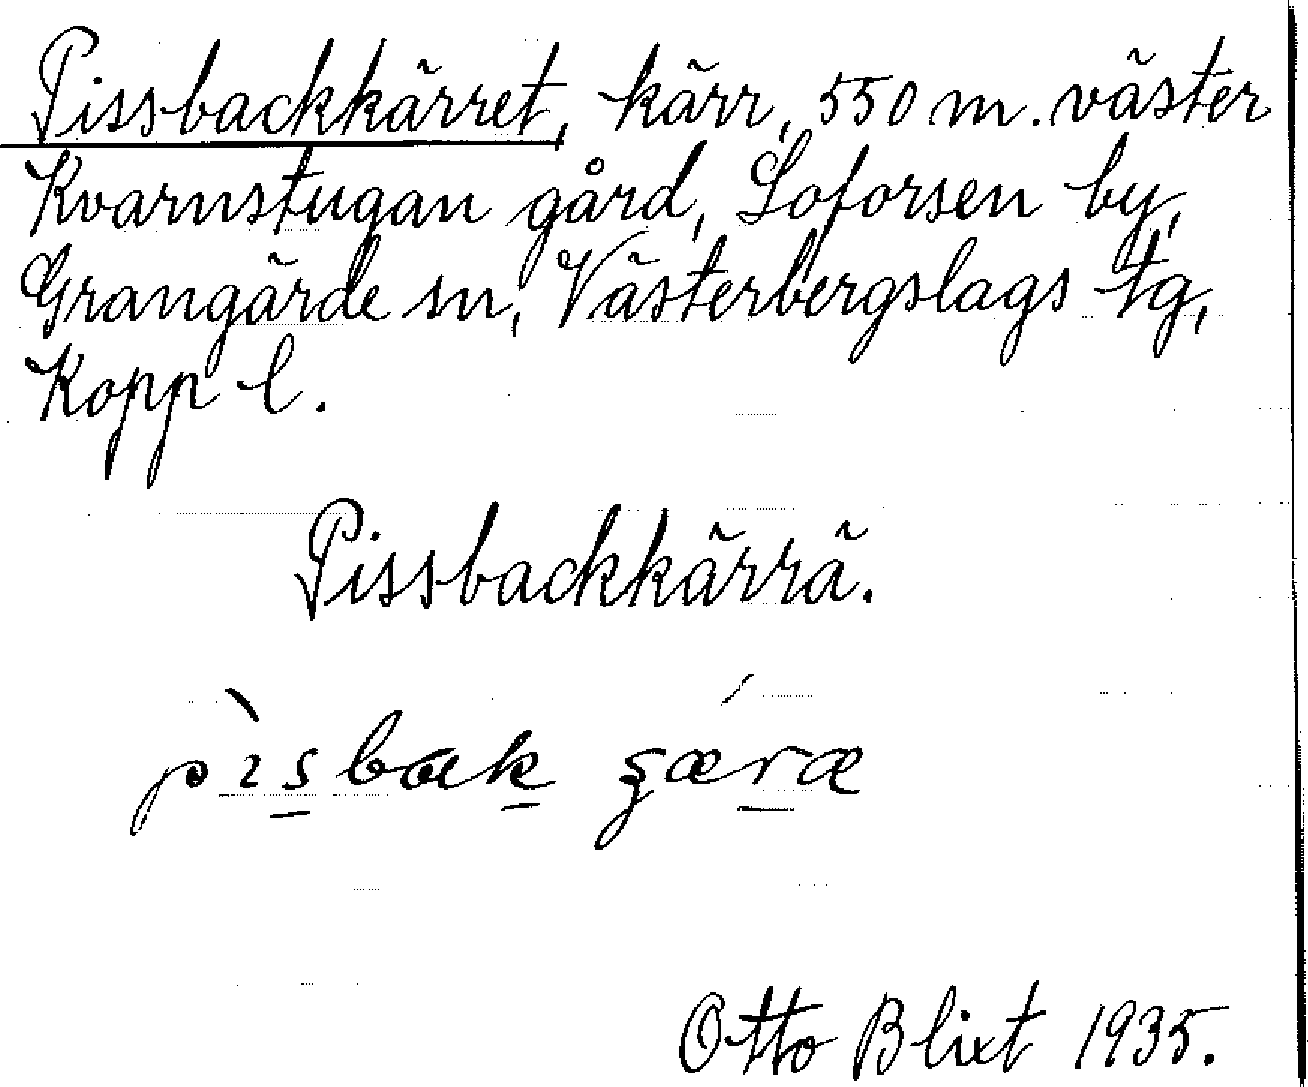 Pissbackkärret, kärr, 550 m. väster
Kvarnstugan gård, Loforsen by,
Grangärde sn, Västerbergslags tg,
Kopp l.
Pissbackkärrä.
pìsbak gǽræ
Otto Blixt 1935.